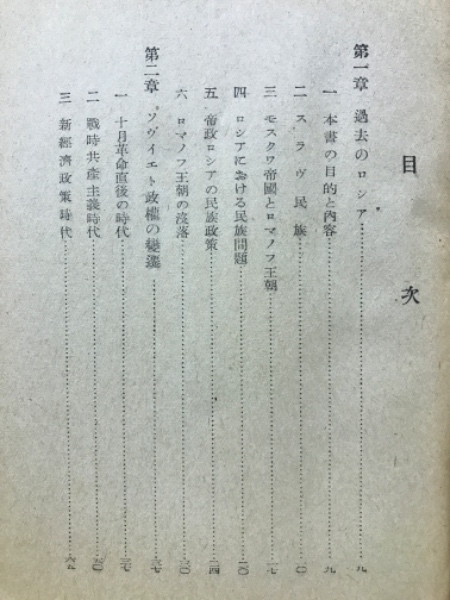 目次
第一章 過去のロシア……九
一 本書の目的と內容……九
二 スラヴ民族……一〇
三 モスクワ帝國とロマノフ王朝……一七
四 ロシアにおける民族問題……二〇
五 帝政ロシアの民族政策……二四
六 ロマノフ王朝の沒落……三〇
第二章 ソヴィエト政權の變遷……三七
一 十月革命直後の時代……三七
二 戰時共產主義時代……五〇
三 新經濟政策時代……六五